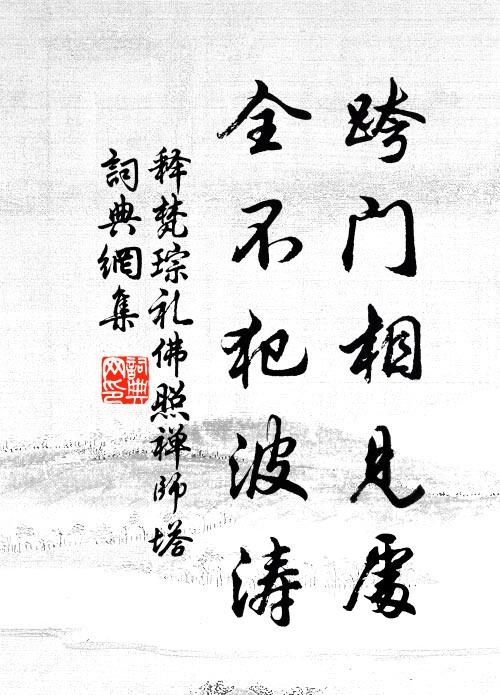 跨门相见处
全不犯波涛
释梵琮礼佛照禅师塔
詞典網集
詞典网印